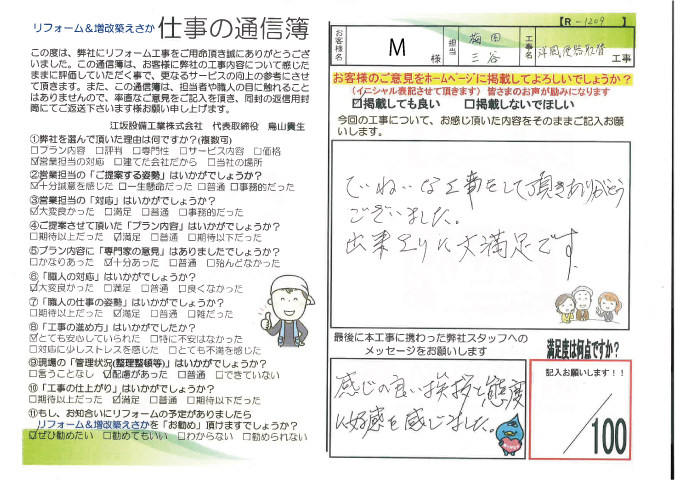 リフォーム&増改築えさか 仕事の通信簿
この度は、弊社にリフォーム工事をご用命頂き誠にありがとうござ
いました。この通信簿は、お客様に弊社の工事内容について感じた
ままに評価していただく事で、更なるサービスの向上の参考にさせ
て頂きます。また、この通信簿は、担当者や職人の目に触れること
はありませんので、率直なご意見をご記入を頂き、同封の返信用封
筒にてご返送下さいます様お願い申し上げます。
江坂設備工業株式会社 代表取締役 鳥山貴生
①弊社を選んで頂いた理由は何ですか?(複数可)
□プラン内容 □評判 □専門性 □サービス内容 □価格
☑営業担当の対応 □建てた会社だから □当社の場所
②営業担当の「ご提案する姿勢」はいかがでしょうか?
☑十分誠意を感じた □一生懸命だった □普通 □事務的だった
③営業担当の「対応」はいかがでしょうか?
☑大変良かった □満足 □普通 □事務的だった
④ご提案させて頂いた「プラン内容」はいかがでしょうか?
□期待以上だった ☑満足 □普通 □期待以下だった
⑤プラン内容に「専門家の意見」はありましたでしょうか?
□かなりあった ☑十分あった □普通 □殆んどなかった
⑥「職人の対応」はいかがでしょうか?
☑大変良かった □満足 □普通 □良くなかった
⑦「職人の仕事の姿勢」はいかがでしょうか?
□期待以上だった ☑満足 □普通 □雑だった
⑧「工事の進め方」はいかがでしたか?
☑とても安心していられた □特に不安はなかった
□対応に少しストレスを感じた □とても不満を感じた
⑨現場の「管理状況(整理整頓等)」はいかがでしょうか?
□言うことなし ☑配慮があった □普通 □できていない
⑩「工事の仕上がり」はいかがでしょうか?
□期待以上だった ☑満足 □普通 □期待以下だった
⑪もし、お知合いにリフォームの予定がありましたら
リフォーム&増改築えさかを「お勧め」頂けますでしょうか?
☑ぜひ勧めたい □勧めてもいい □わからない □勧められない
【R-1209 】
お客様名 M 様 担当 梅田 三谷 工事名 洋風便器取替 工事
お客様のご意見をホームページに掲載してよろしいでしょうか?
(イニシャル表記させて頂きます) 皆さまのお声が励みになります
☑掲載しても良い □掲載しないでほしい
今回の工事について、お感じ頂いた内容をそのままご記入お願
いします。
ていねいな工事をして頂きありがとう
ございました。
出来上りに大満足です。
最後に本工事に携わった弊社スタッフへの
メッセージをお願いします
感じの良い挨拶と態度
に好感を感じました。
満足度は何点ですか?
記入お願いします!!
/100